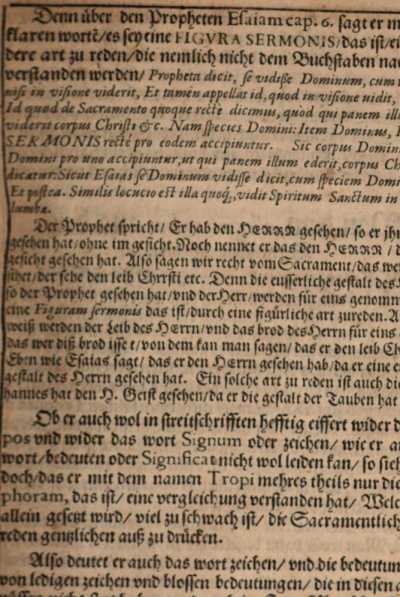 Denn über den Propheten Esaiam cap. 6. sagt er m
klaren wortē/ es sey eine FIGVRA SERMONIS/ das ist/ ei
dere art zu reden/ die nemlich nicht dem Buchstaben na
verstanden werden/ Propheta dicit, se vidisse Dominum, cum
nisi in visione viderit, Et tamen appellat id, quod in visione uidit,
Id quod de Sacramento quoque rectè dicimus, quod qui panem ill
viderit corpus Christi &c. Nam species Domini: Item Dominus,
SERMONIS rectè pro eodem accipiuntur. Sic corpus Domin
Domini pro uno accipiuntur, ut qui panem illum ederit, corpus Ch
dicatur: Sicut Esaias se Dominum vidisse dicit, cum speciem Domi
Et postea. Similis locucio est illa quoq;, vidit Spiritum Sanctum in
lumbæ.
Der Prophet spricht/ Er hab den HERRN gesehen/ so er jhn
gesehen hat/ ohne im gesicht. Noch nennet er das den HERRN / d
gesicht gesehen hat. Also sagen wir recht vom Sacrament/ das we
sihet/ der sehe den leib Christi etc. Denn die eusserliche gestalt des H
so der Prophet gesehen hat/ vnd der Herr/ werden für eins genomm
eine Figuram sermonis das ist/ durch eine figürliche art zureden. A
weiß werden der Leib des HErrn/ vnd das brod des Herrn für eins
das wer diß brod isset/ von dem kan man sagen/ das er den leib Ch
Eben wie Esaias sagt/ das er den HErrn gesehen hab/ da er eine
gestalt des Herrn gesehen hat. Ein solche art zu reden ist auch die
hannes hat den H. Geist gesehen/ da er die gestalt der Tauben hat
Ob er auch wol in streitschrifften hefftig eiffert wider d
pos vnd wider das wort Signum oder zeichen/ wie er a
wort/ bedeuten oder Significat nicht wol leiden kan/ so sieh
doch/ das er mit dem namen Tropi mehres theils nur die
phoram, das ist/ eine vergleichung verstanden hat/ Welc
allein gesetzt wird/ viel zu schwach ist/ die Sacramentlich
reden gentzlichen auß zu drücken.
Also deutet er auch das wort zeichen/ vnd die bedeutun
von ledigen zeichen vnd blossen bedeutungen/ die in diesen